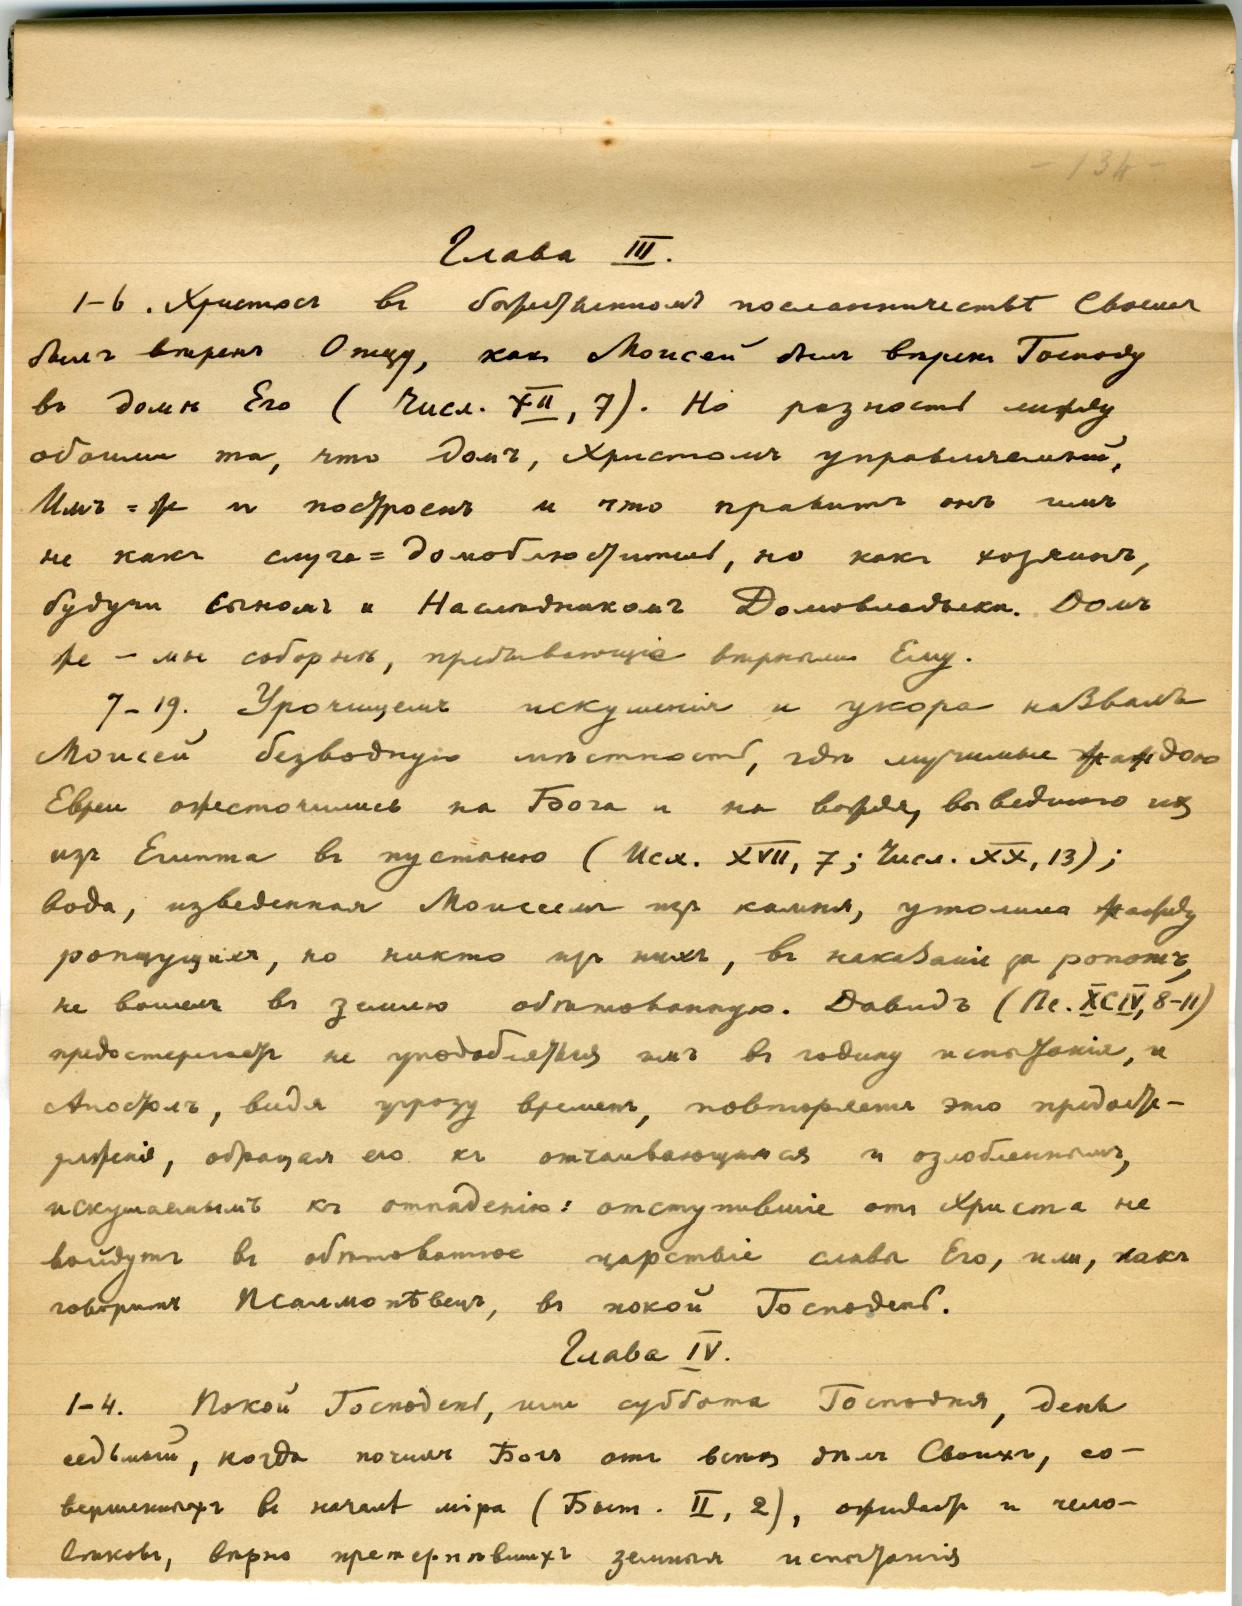 - 134 -
Глава III.
1-6. Христосъ въ божественномъ посланничествѣ Своемъ
былъ вѣренъ Отцу, какъ Моисей былъ вѣренъ Господу
въ домѣ Его (Числ. XII, 7). Но разность между
обоими та, что домъ, Христомъ управляемый,
Имъ=же и построенъ и что правитъ онъ имъ
не какъ слуга=домоблюститель, но какъ хозяинъ,
будучи сыномъ и Наслѣдникомъ Домовладыки. Домъ
же - мы соборнѣ, пребывающіе вѣрными Ему.
7-19. Урочищемъ искушенія и укора назвалъ
Моисей безводную мѣстность, гдѣ мучимые жаждою
Евреи ожесточились на Бога и на вождя, выведшаго ихъ
изъ Египта въ пустыню (Исх. XVII, 7; Числ. XX, 13);
вода, изведенная Моисеемъ изъ камня, утолила жажду
ропщущихъ, но никто изъ нихъ, въ наказаніе за ропотъ,
не вошелъ въ землю обѣтованную. Давидъ (Пс. XCIV, 8-11)
предостерегаетъ не уподобляться имъ въ годину испытанія, и
Апостолъ, видя угрозу временъ, повторяетъ это предосте-
реженіе, обращая его къ отчаивающимся и озлобленнымъ,
искушаемымъ къ отпаденію: отступившіе отъ Христа не
войдутъ въ обѣтованное царствіе славы Его, или, какъ
говоритъ Псалмопѣвецъ, въ покой Господень.
Глава IV.
1-4. Покой Господень, или суббота Господня, день
седьмый, когда почилъ Богъ отъ всѣхъ дѣлъ Своихъ, со-
вершенныхъ въ началѣ міра (Быт. II, 2), ожидаетъ и чело-
вѣковъ, вѣрно претерпѣвшихъ земныя испытанія